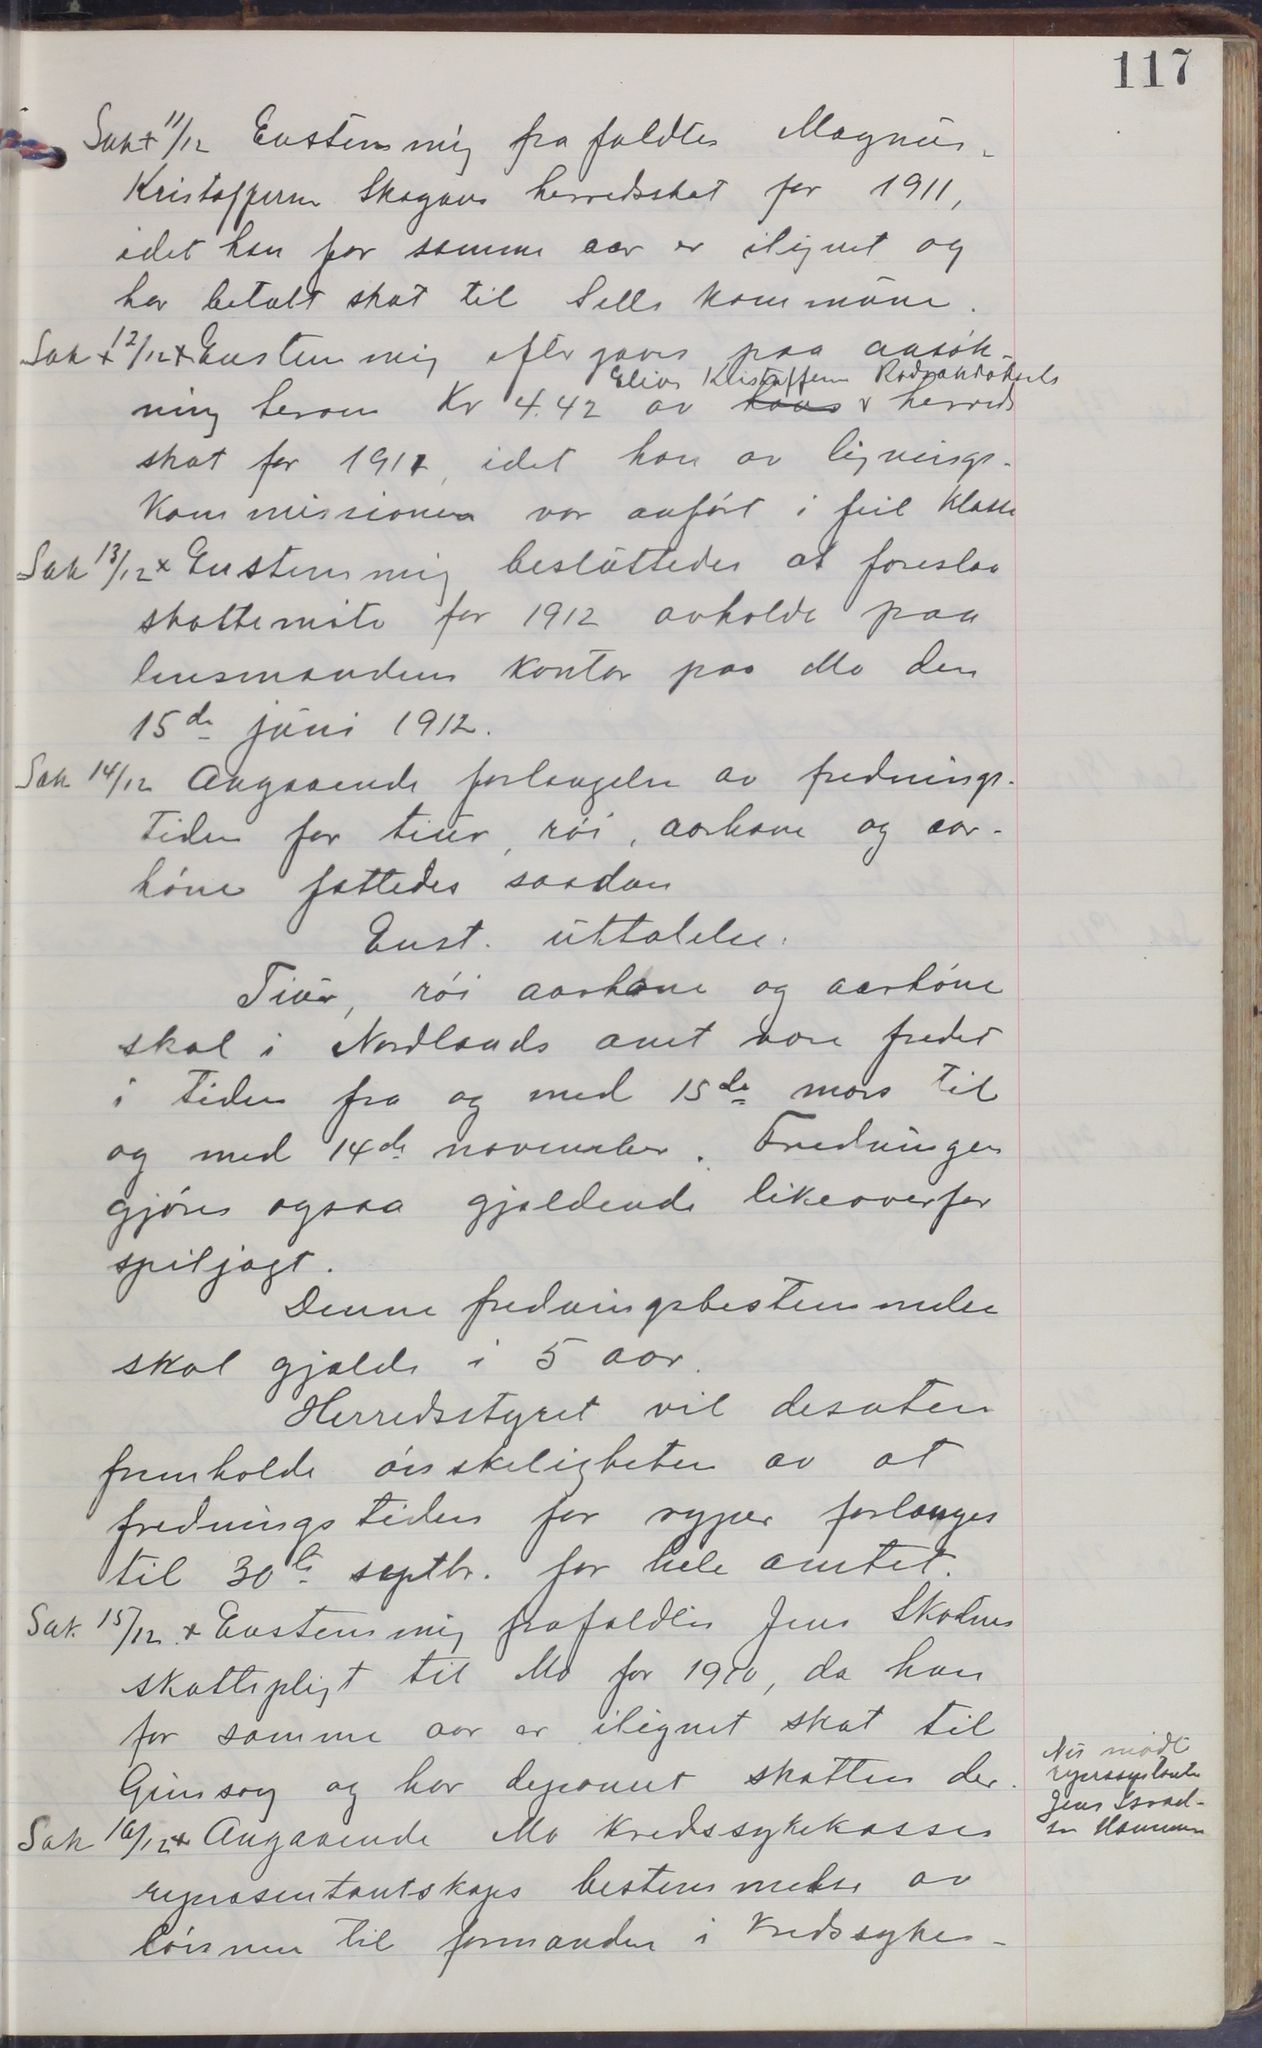 117
Sak + 11/12 Enstemmig frafaldtes Magnus
Kristoffersen Skogaas herredsskat for 1911,
idet han for samme aar er ilignet og
har betalt skat til Sells kommune.
Sak + 12/12 + Enstemmig eftergaves paa ansök-
Elias Kristoffersen
ning herom Kr 4.42 av hans herreds
skat for 1911, idet han av lignings-
kommissionen var anført i feil klasse
Sak 13/12 x Enstemmig besluttedes at foreslaa
skattemöte for 1912 avholdt paa
lensmandens kontor paa Mo den
15de juni 1912.
Sak 14/12 Angaaende forlængelse av frednings-
tiden for tiur, röi, aarhane og aar-
höne fattedes saadan
Enst. uttalelse:
Tiur, röi aarhane og aarhöne
skal i Nordlands amt være fredet
i tiden fra og med 15de mars til
og med 14de november. Fredningen
gjöres ogsaa gjældende likeoverfor
spiljagt.
Denne fredningsbestemmelse
skal gjælde i 5 aar.
Herredsstyret vil desuten
fremholde önskeligheten av at
fredningstiden for ryper forlænges
til 30te septbr. for hele amtet.
Sak 15/12 + Enstemmig frafaldtes Jens Skotnes
skattepligt til Mo for 1910, da han
for samme aar er ilignet skat til
Gimsøy og har deponert skatten der.
Sak 16/12 + Angaaende Mo kredssykekasses
repræsentantskaps bestemmelse av
lönnen til formanden i kredssyke-
Nu mödte
repræsentanten
Jens Israel-
sen